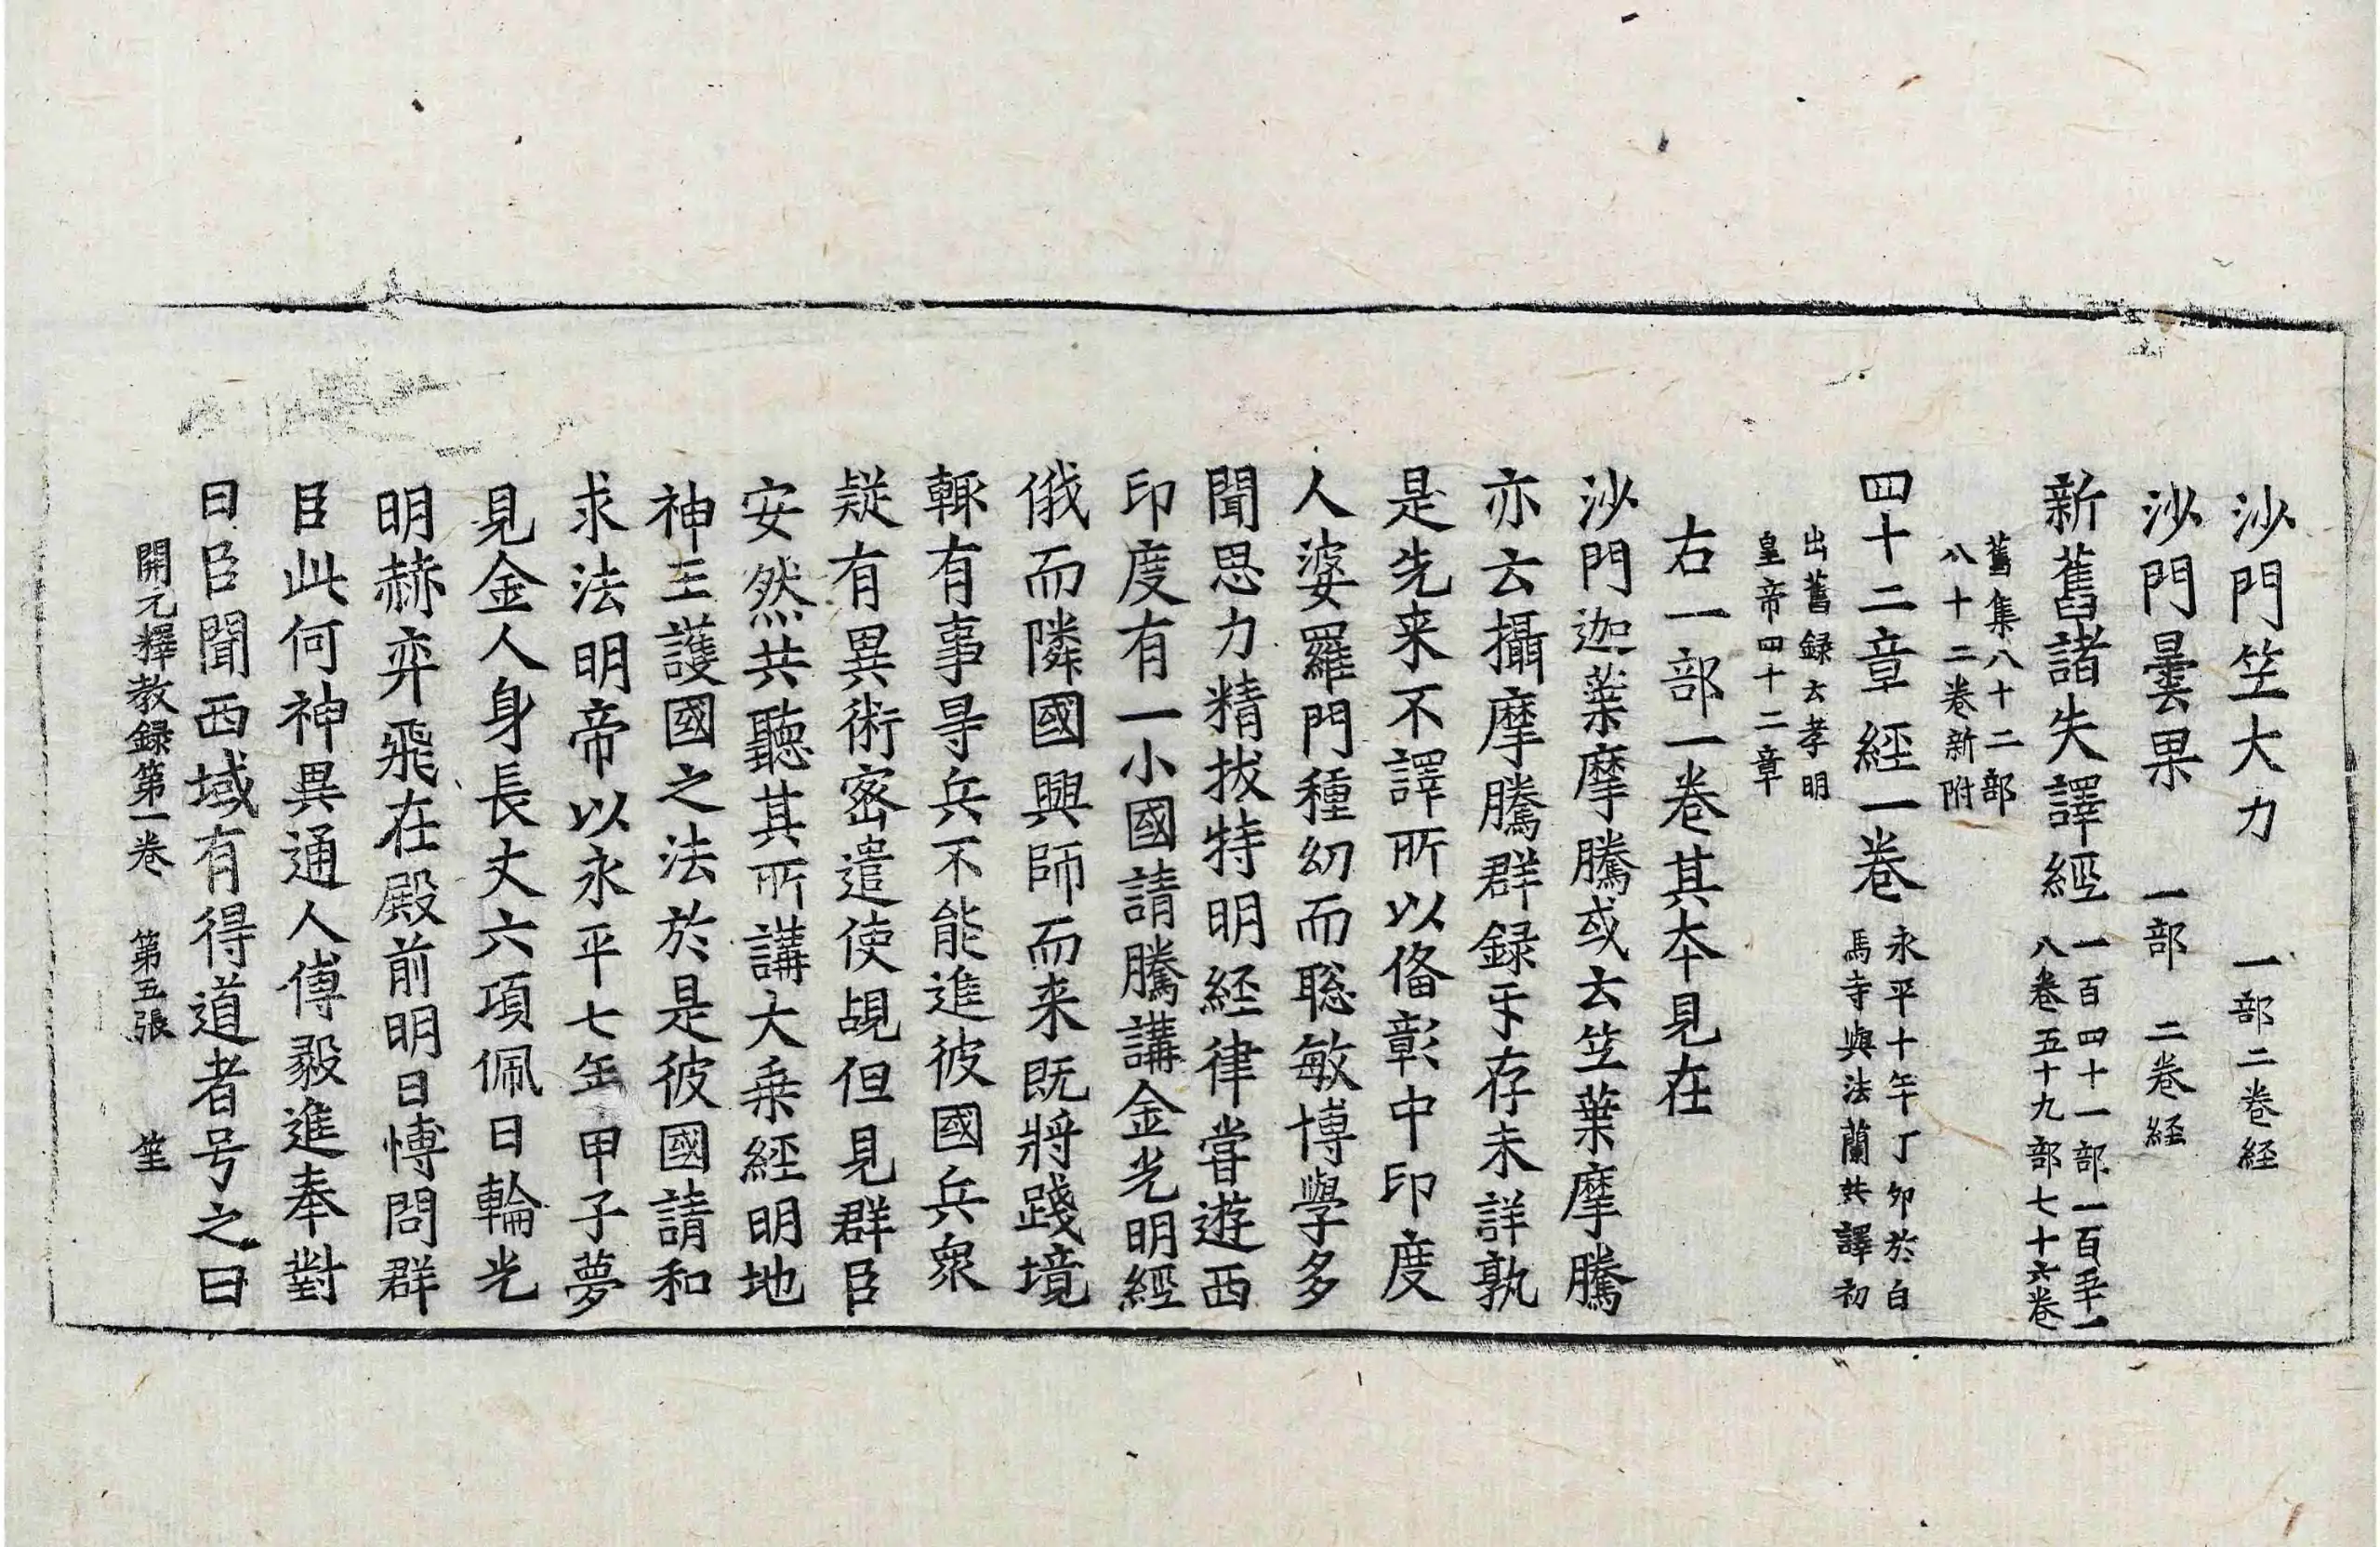 沙門笠大力　一部二卷経
沙門曇果　一部　二卷経
新舊諸失譯經　一百四十一部一百平一
八卷五十九部七十六卷
舊集八十二部
八十二卷新附
四十二章經一卷　永平十年丁夘於白
馬寺與法蘭共譯初
出舊録云孝明
皇帝四十二章
右一部一卷其夲見在
沙門迦葉摩騰或云笠葉摩騰
亦云攝摩騰群録㸦存未詳孰
是先来不譯所以俻彰中印度
人婆羅門種幼而聦敏博學多
聞思力精拔特明経律甞遊西
印度有一小國請騰講金光明經
俄而隣國興師而来既將踐境
輙有事㝵兵不能進彼國兵衆
疑有異術宻遣使覘但見群臣
安然共聽其所講大乗經明地
神王護國之法於是彼國請和
求法明帝以永平七年甲子夢
見金人身長丈六項佩日輪光
明赫弈飛在殿前明日愽問群
臣此何神異通人傅毅進奉對
曰臣聞西域有得道者号之曰
開元釋教録第一卷　第五張　笙